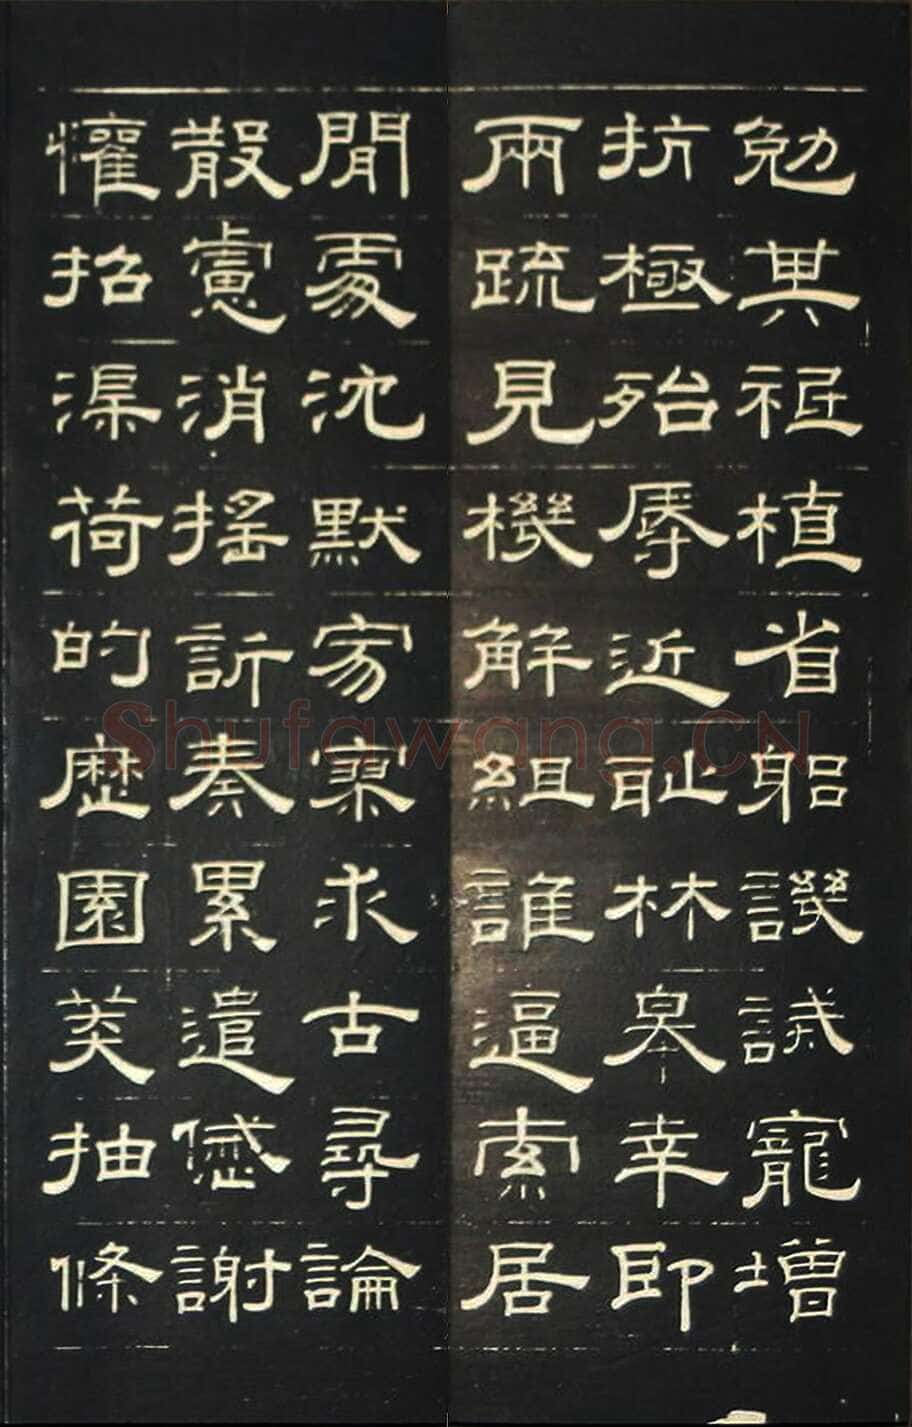 勉其祗植省躳譏誡寵增
抗極殆辱近耻林皋幸即
兩疏見機解組誰逼索居
閒處沈默寂寥求古尋論
散慮消搖訢奏累遣慽謝
懽招渠荷的歷園莽抽條
Shufawang.CN